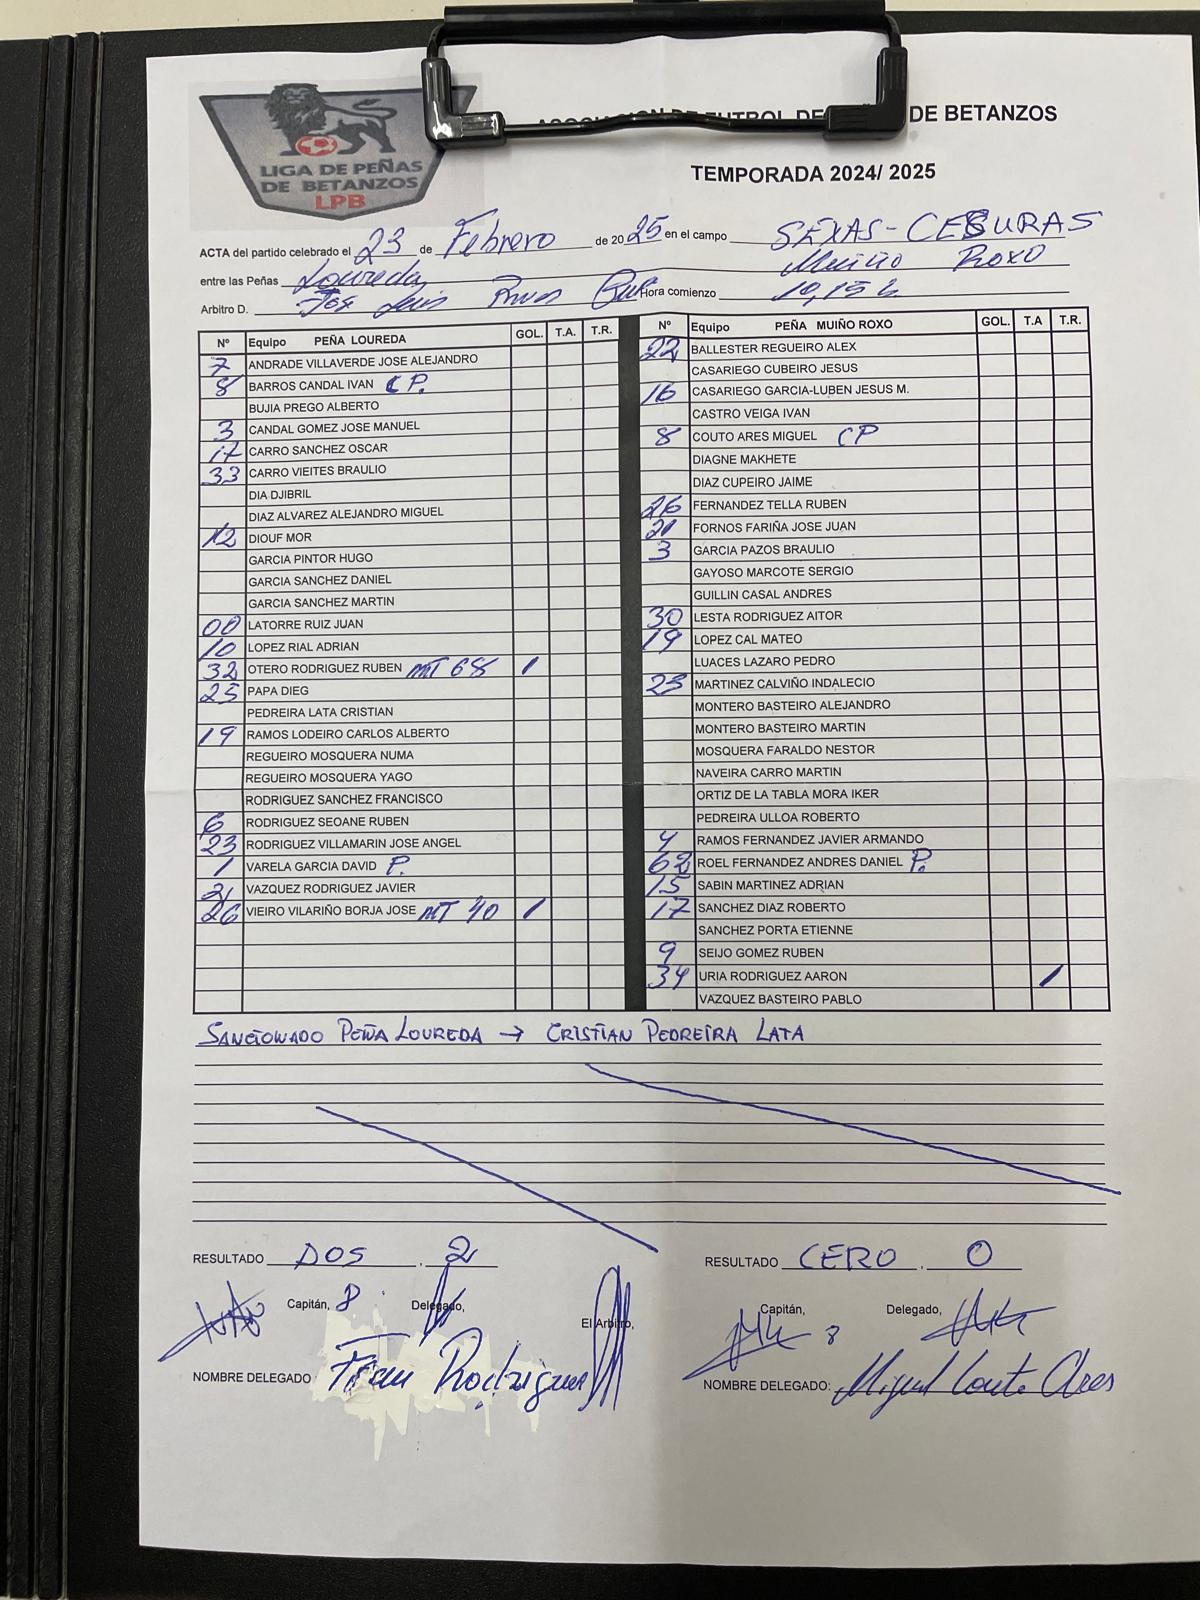 LIGA DE PEÑAS
DE BETANZOS
LPB
DE BETANZOS
TEMPORADA 2024/ 2025
ACTA del partido celebrado el 23 de Febrero de 2025 en el campo SEXAS-CESURAS
entre las Peñas Loureda Muiño Roxo
Arbitro D. Jose Luis Hora comienzo 10,15 h
Nº Equipo PEÑA LOUREDA GOL. T.A. T.R.
7 ANDRADE VILLAVERDE JOSE ALEJANDRO
8 BARROS CANDAL IVAN CP.
BUJIA PREGO ALBERTO
3 CANDAL GOMEZ JOSE MANUEL
17 CARRO SANCHEZ OSCAR
33 CARRO VIEITES BRAULIO
DIA DJIBRIL
DIAZ ALVAREZ ALEJANDRO MIGUEL
12 DIOUF MOR
GARCIA PINTOR HUGO
GARCIA SANCHEZ DANIEL
GARCIA SANCHEZ MARTIN
00 LATORRE RUIZ JUAN
10 LOPEZ RIAL ADRIAN
32 OTERO RODRIGUEZ RUBEN MT 68 1
25 PAPA DIEG
PEDREIRA LATA CRISTIAN
19 RAMOS LODEIRO CARLOS ALBERTO
REGUEIRO MOSQUERA NUMA
REGUEIRO MOSQUERA YAGO
RODRIGUEZ SANCHEZ FRANCISCO
6 RODRIGUEZ SEOANE RUBEN
23 RODRIGUEZ VILLAMARIN JOSE ANGEL
1 VARELA GARCIA DAVID P.
21 VAZQUEZ RODRIGUEZ JAVIER
26 VIEIRO VILARIÑO BORJA JOSE MT 40 1
Nº Equipo PEÑA MUIÑO ROXO GOL. T.A T.R.
22 BALLESTER REGUEIRO ALEX
CASARIEGO CUBEIRO JESUS
16 CASARIEGO GARCIA-LUBEN JESUS M.
CASTRO VEIGA IVAN
8 COUTO ARES MIGUEL CP
DIAGNE MAKHETE
DIAZ CUPEIRO JAIME
26 FERNANDEZ TELLA RUBEN
21 FORNOS FARIÑA JOSE JUAN
3 GARCIA PAZOS BRAULIO
GAYOSO MARCOTE SERGIO
GUILLIN CASAL ANDRES
30 LESTA RODRIGUEZ AITOR
19 LOPEZ CAL MATEO
LUACES LAZARO PEDRO
23 MARTINEZ CALVIÑO INDALECIO
MONTERO BASTEIRO ALEJANDRO
MONTERO BASTEIRO MARTIN
MOSQUERA FARALDO NESTOR
NAVEIRA CARRO MARTIN
ORTIZ DE LA TABLA MORA IKER
PEDREIRA ULLOA ROBERTO
4 RAMOS FERNANDEZ JAVIER ARMANDO
62 ROEL FERNANDEZ ANDRES DANIEL P.
15 SABIN MARTINEZ ADRIAN
17 SANCHEZ DIAZ ROBERTO
SANCHEZ PORTA ETIENNE
9 SEIJO GOMEZ RUBEN
34 URIA RODRIGUEZ AARON /
VAZQUEZ BASTEIRO PABLO
SANCIONADO PEÑA LOUREDA → CRISTIAN PEDREIRA LATA
RESULTADO DOS , 2
RESULTADO CERO , 0
Capitán, 8 Delegado, El Arbitro,
Capitán, 8 Delegado,
NOMBRE DELEGADO Fran Rodriguez
NOMBRE DELEGADO: Miguel Couto Ares